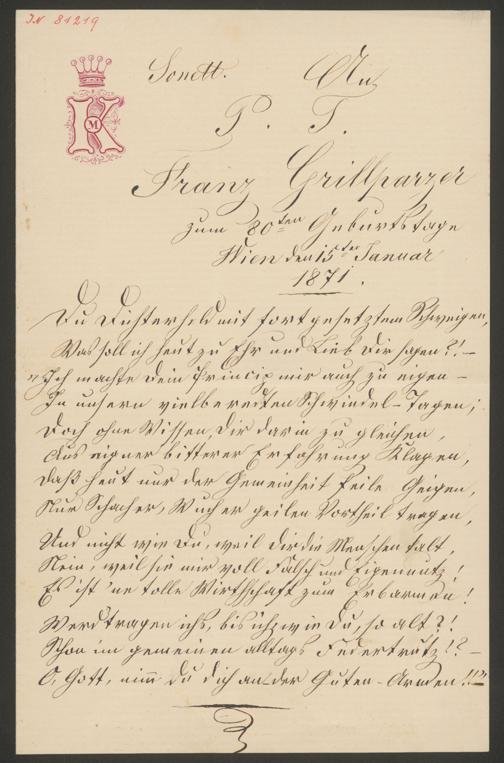 IN 81219
K
M
Sonett. An
P. T.
Franz Grillparzer
zum 80ten Geburtstage
Wien den 15ter Januar
1871.
Du Dichterheld mit fortgesetztem Schweigen,
Was soll ich heut zu Ehr und Lieb Dir sagen?! –
Ich machte Dein Princip mir auch zu eigen –
In unsern vielberedten Schwindel-Tagen;
Doch ohne Wissen, Dir darin zu gleichen,
Aus eigner bitterer Erfahrung Klagen,
Daß heut nur der Gemeinheit feile Geigen,
Nur Schacher, Wucher geilen Vortheil tragen,
Und nicht wie Du, weil dir die Menschen kalt,
Nein, weil sie mir voll Falsch und Eigennutz!
Es ist 'ne tolle Wirthschaft zum Erbarmen!
Werd tragen ichs, bis ich wie Du, so alt?!
Schon im gemeinen alltags Federtrutz!? –
O, Gott, nimm Du dich an der Guten-Armen!!!"